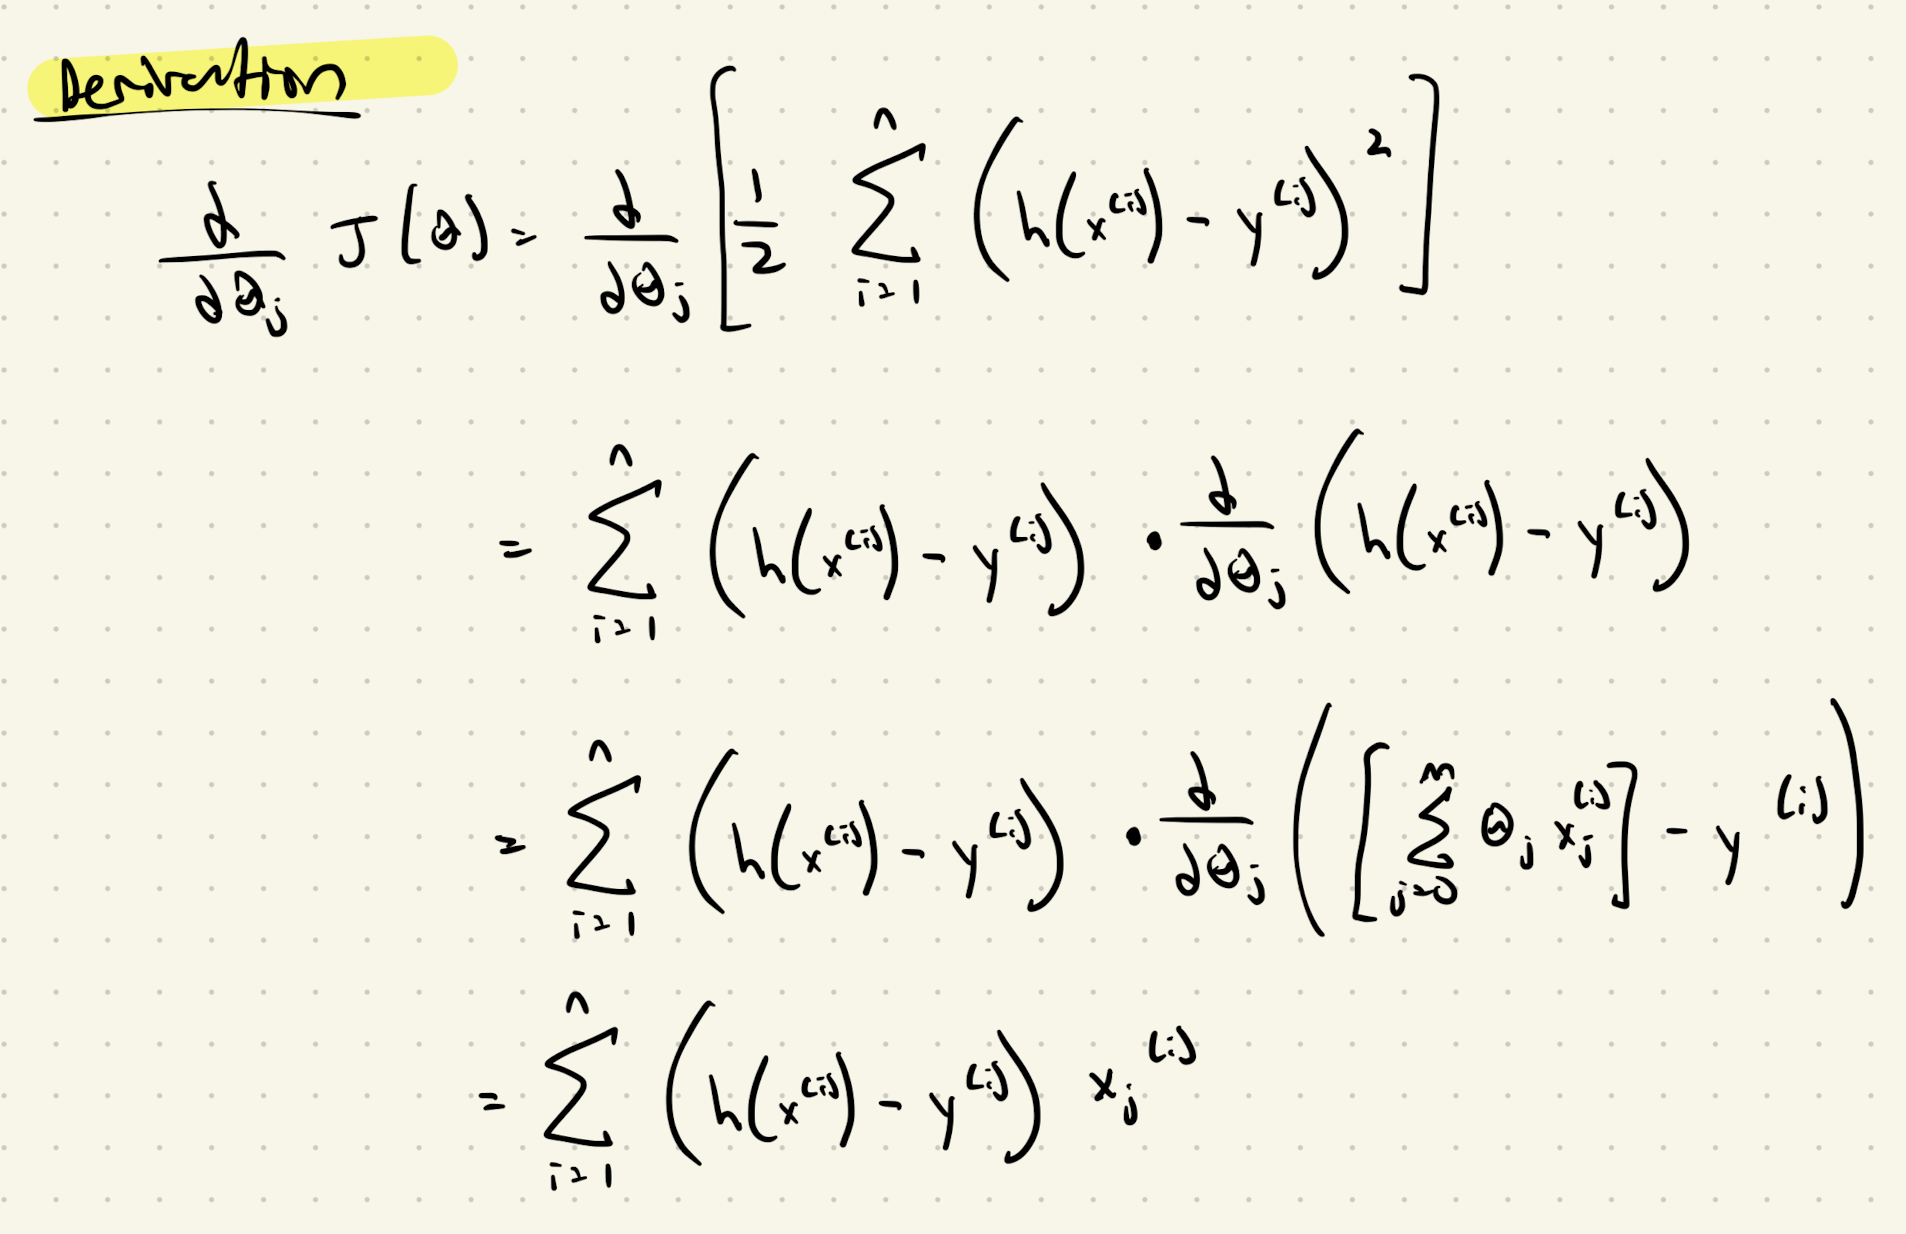 Derivation
d/dθ_j J(θ) = d/dθ_j [ 1/2 ∑_{i=1}^{n} (h(x^{(i)}) - y^{(i)})^2 ]
= ∑_{i=1}^{n} (h(x^{(i)}) - y^{(i)}) • d/dθ_j (h(x^{(i)}) - y^{(i)})
= ∑_{i=1}^{n} (h(x^{(i)}) - y^{(i)}) • d/dθ_j ([∑_{j=0}^{m} θ_j x_j^{(i)}] - y^{(i)})
= ∑_{i=1}^{n} (h(x^{(i)}) - y^{(i)}) x_j^{(i)}